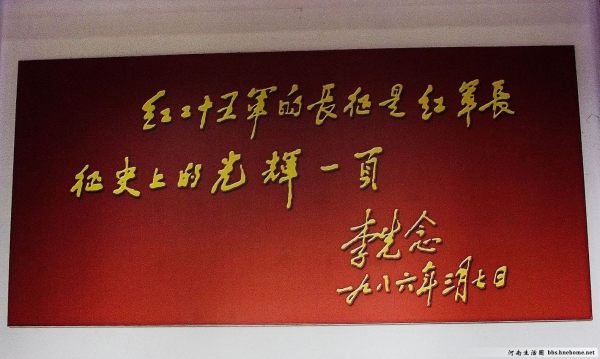 红二十五軍的長征是红軍長
征史上的光輝一頁
李先念
一九八六年三月七日
河南生活圈 bbs.hnehome.net